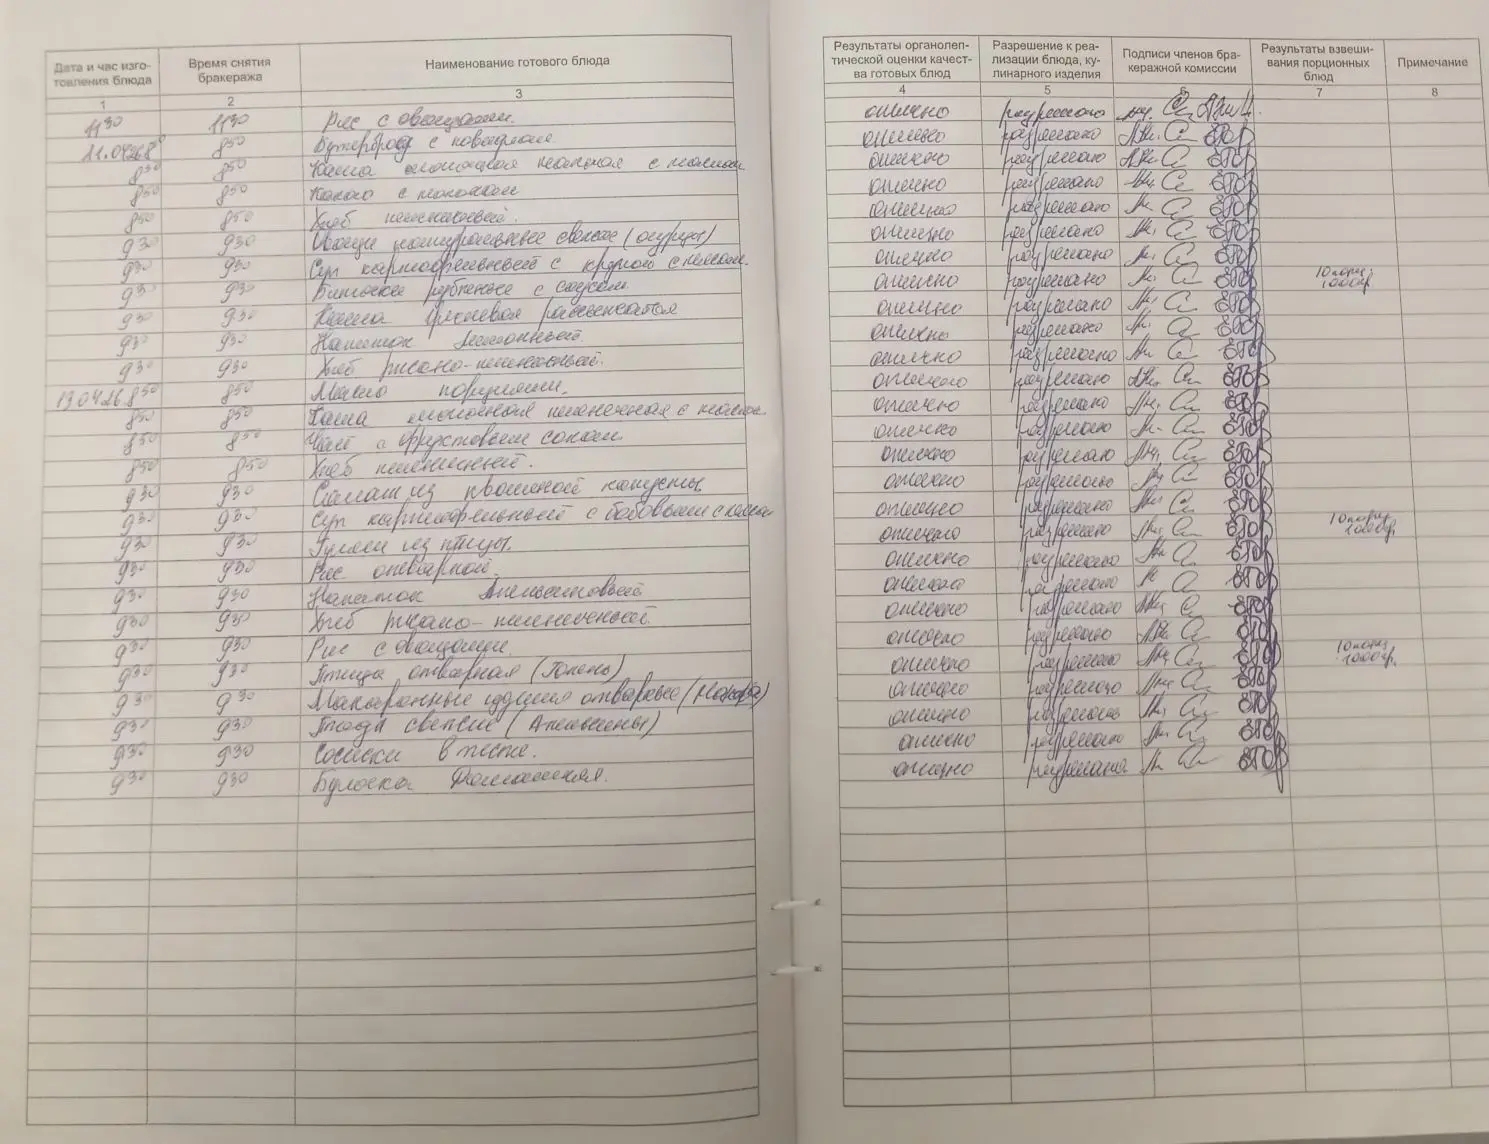 Дата и час изго-
товления блюда
Время снятия
бракеража
Наименование готового блюда
1
2
3
11 30 11 30 Рис с овощами.
850 Бутерброд с повидлом
850 850 Каша молочная манная с маслом
850 850 Какао с молоком
850 850 Хлеб пшеничный.
930 930 Овощи натуральные свежие (огурцы)
930 930 Суп картофельный с крупой с мясом.
930 930 Биточки рубленые с соусом
930 930 Каша рассыпчатая
930 930 Напиток Лимонный.
930 930 Хлеб ржано-пшеничный.
13.04.26 850 850 Масло порциями.
850 850 Каша молочная пшеничная с маслом.
850 850 Чай с фруктовым соком.
850 850 Хлеб пшеничный.
930 930 Салат из квашеной капусты
930 930 Суп картофельный с бобовыми с мясом
930 930 Гуляш из птицы.
930 930 Рис отварной.
930 930 Напиток Апельсиновый
930 930 Хлеб ржано-пшеничный.
930 930 Рис с овощами.
930 930 Птица отварная (Голень)
930 930 Макаронные изделия отварные
930 930 Плоды свежие (Апельсины)
930 930 Сосиски в тесте.
930 930 Булочка Домашняя.
Результаты органолеп-
тической оценки качест-
ва готовых блюд
Разрешение к реа-
лизации блюда, ку-
линарного изделия
Подписи членов бра-
керажной комиссии
Результаты взвеши-
вания порционных
блюд
Примечание
4
5
6
7
8
отлично разрешено
отлично разрешено
отлично разрешено
отлично разрешено
отлично разрешено
отлично разрешено
отлично разрешено
отлично разрешено 10 порц.
1000гр.
отлично разрешено
отлично разрешено
отлично разрешено
отлично разрешено
отлично разрешено
отлично разрешено
отлично разрешено
отлично разрешено
отлично разрешено
отлично разрешено 10 порц.
1000гр.
отлично разрешено
отлично разрешено
отлично разрешено
отлично разрешено
отлично разрешено 10 порц.
1000гр.
отлично разрешено
отлично разрешено
отлично разрешено
отлично разрешено